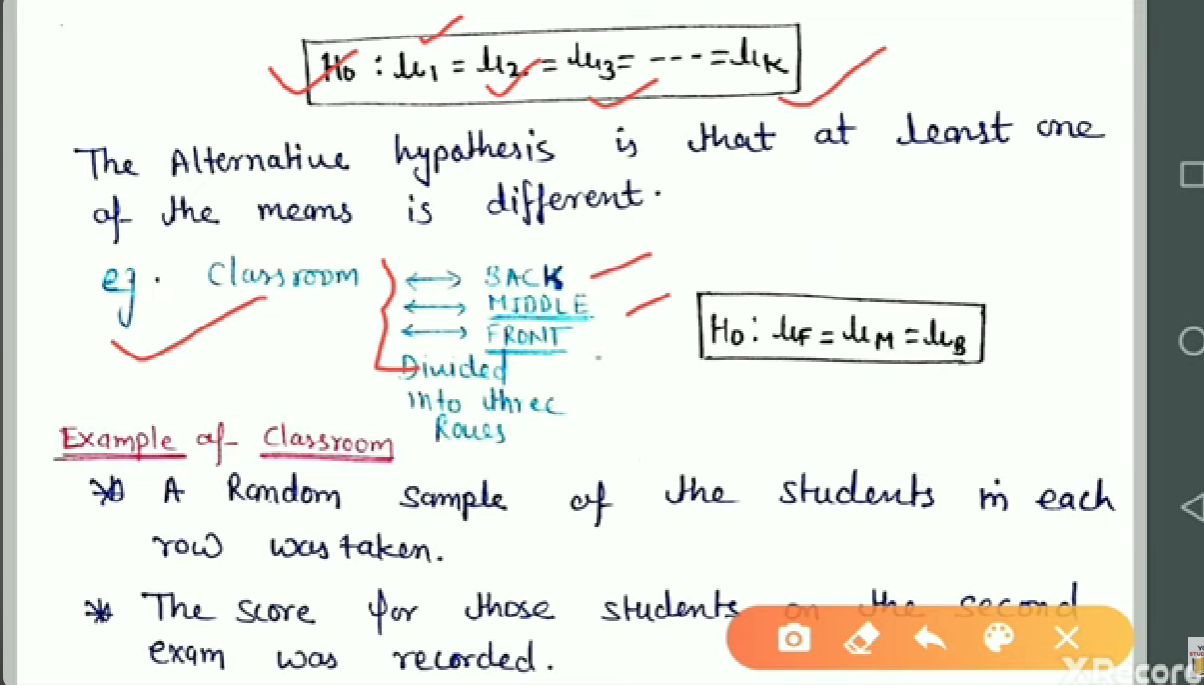 H₀ : μ₁ = μ₂ = μ₃ = ---- = μK
The Alternative hypothesis is that at least one
of the means is different.
eg. Classroom ↔ BACK
↔ MIDDLE
↔ FRONT
Divided
into three
Rows
H₀ : μF = μM = μB
Example of Classroom
A Random sample of the students in each
row was taken.
The score for those students on the second
exam was recorded.
XRecorder